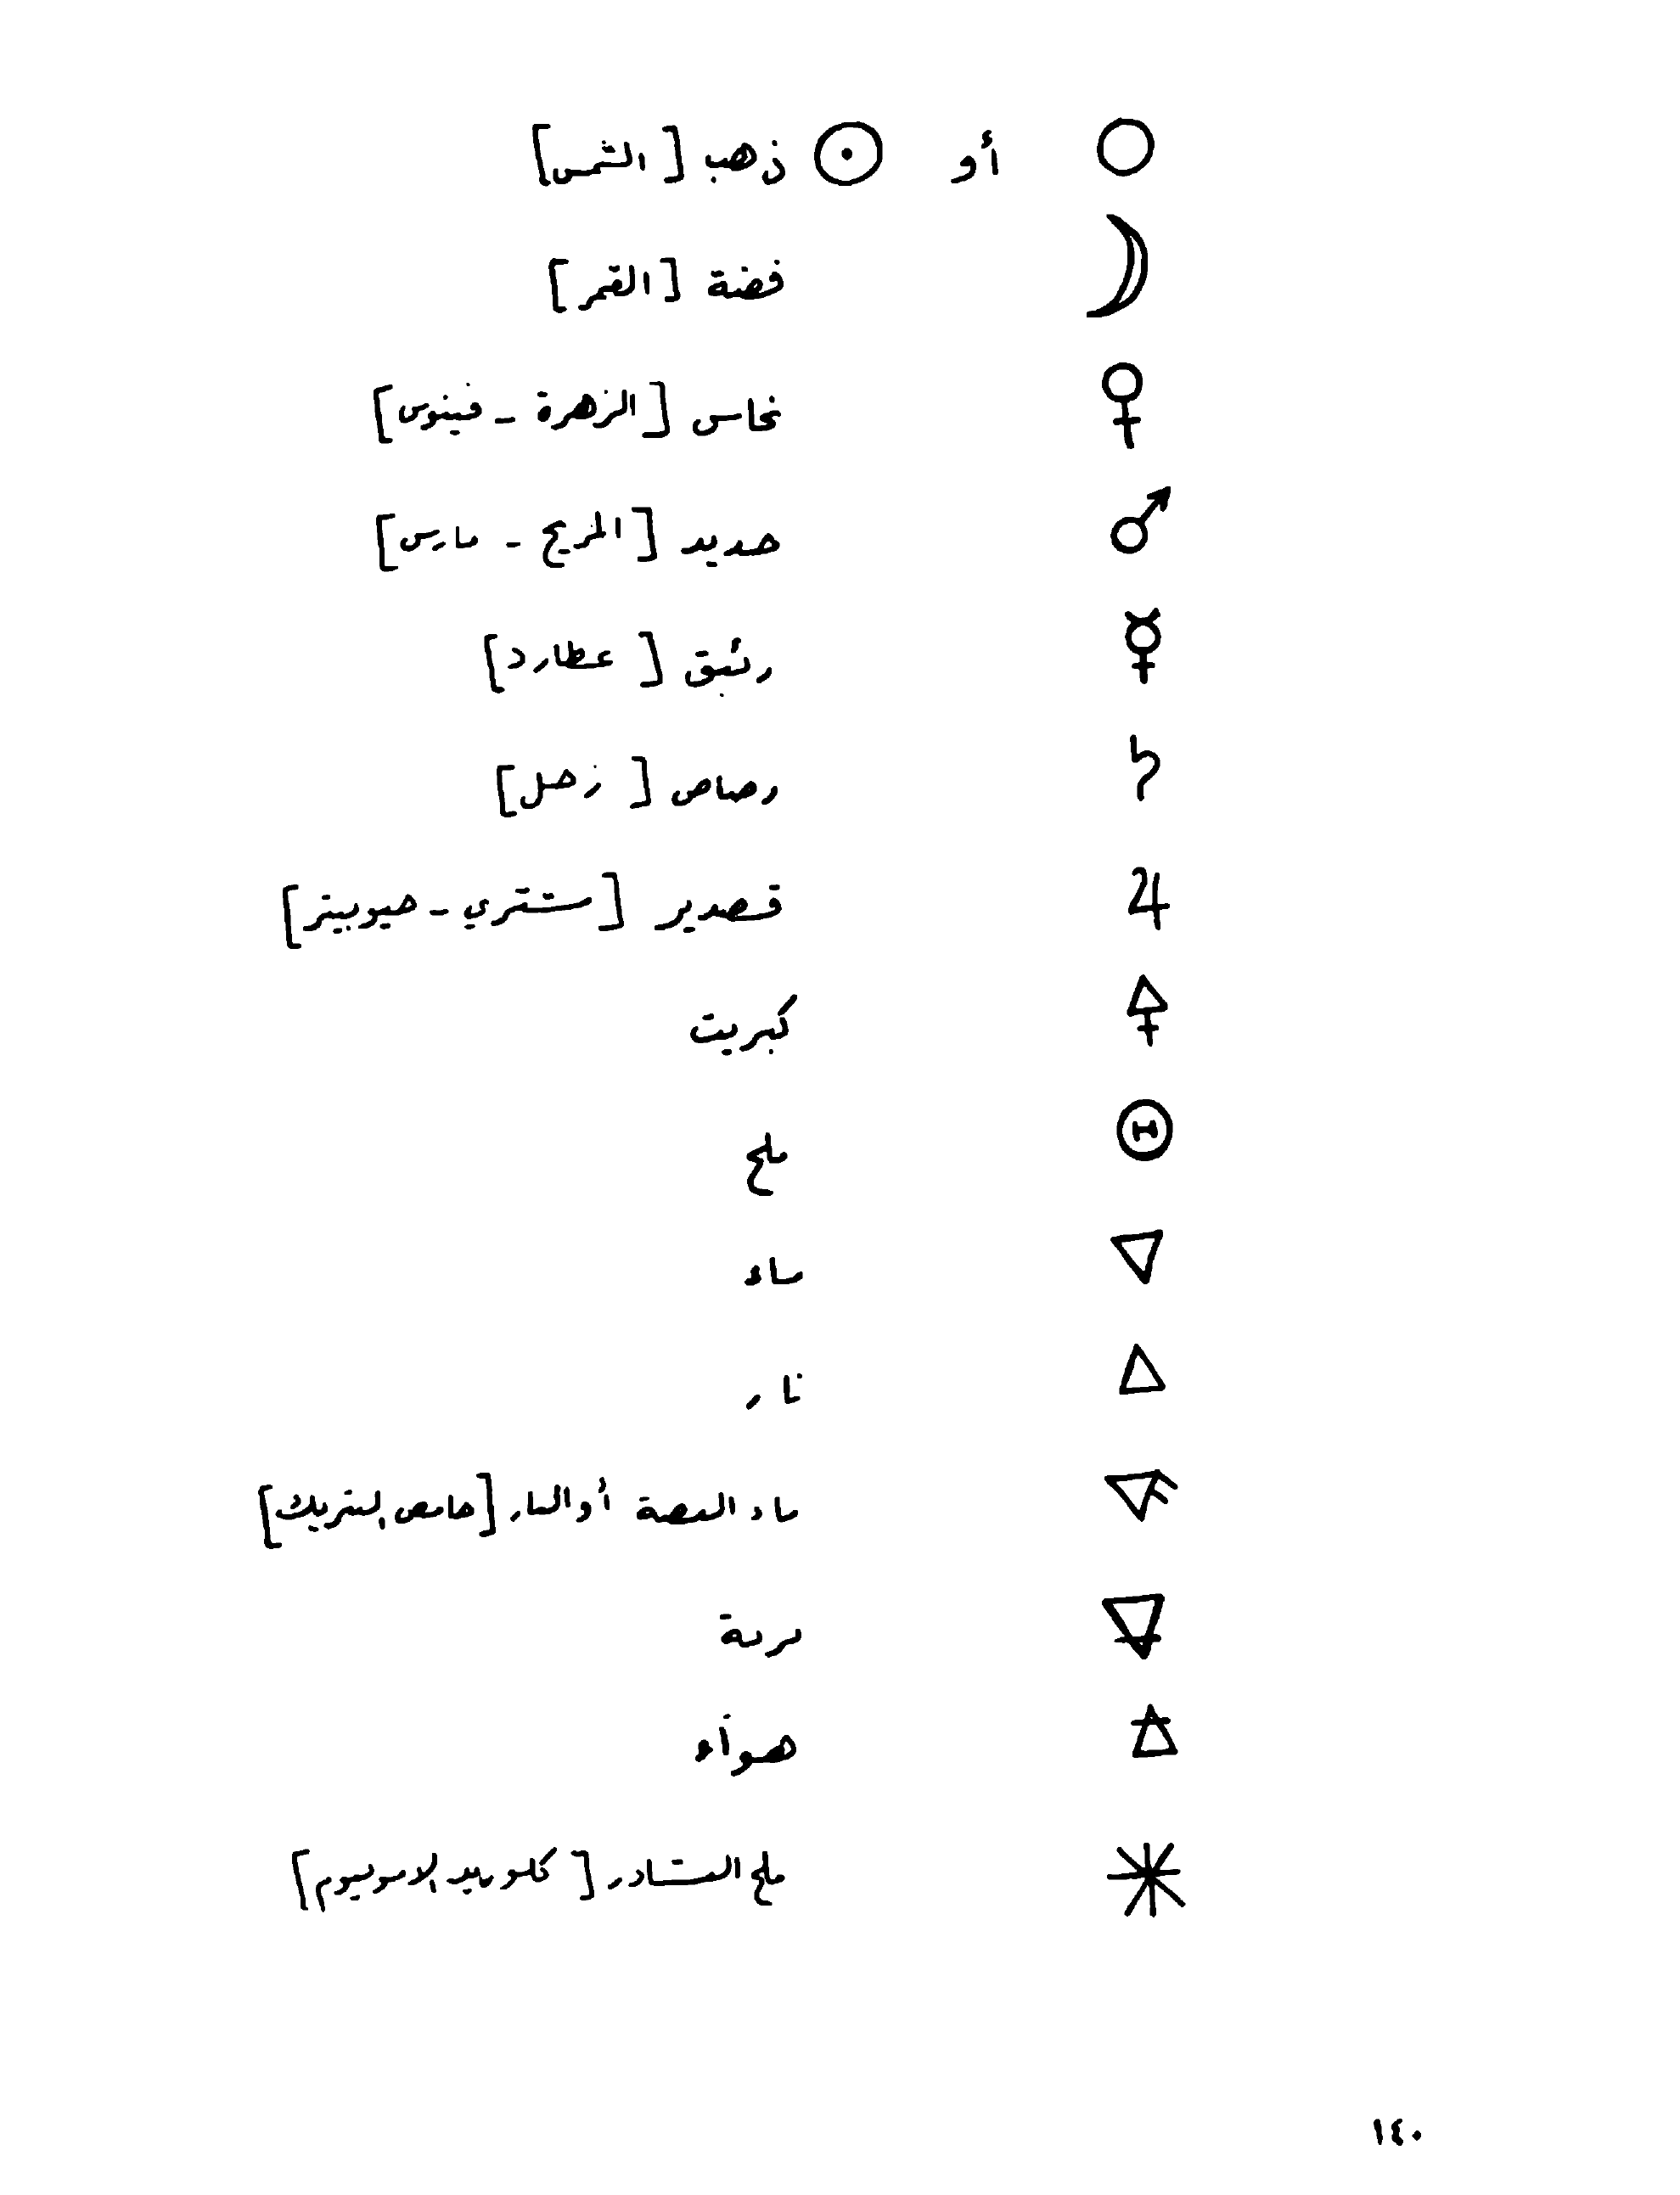 ○ أو ☉ ذهب [الشمس]
☽ فضة [القمر]
♀ نحاس [الزهرة - فينوس]
♂ حديد [المريخ - مارس]
☿ رئبق [عطارد]
♄ رصاص [زحل]
♃ قصدير [مشتري - جيوبيتر]
🜍 كبريت
ملح
🜄 ماء
🜂 نار
ماء الفضة أو النار [حامض النتريك]
🜃 تربة
🜁 هواء
ملح النشادر [كلوريد الامونيوم]
١٤٠